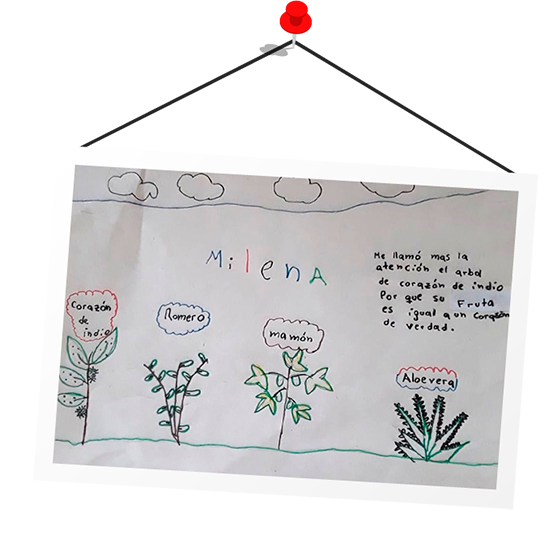 Milena
Me llamó mas la
atención el arbol
de corazón de indio
Por que su Fruta
es igual a un Corazón
de verdad.
Corazón
de
indio
Romero
mamón
Aloevera